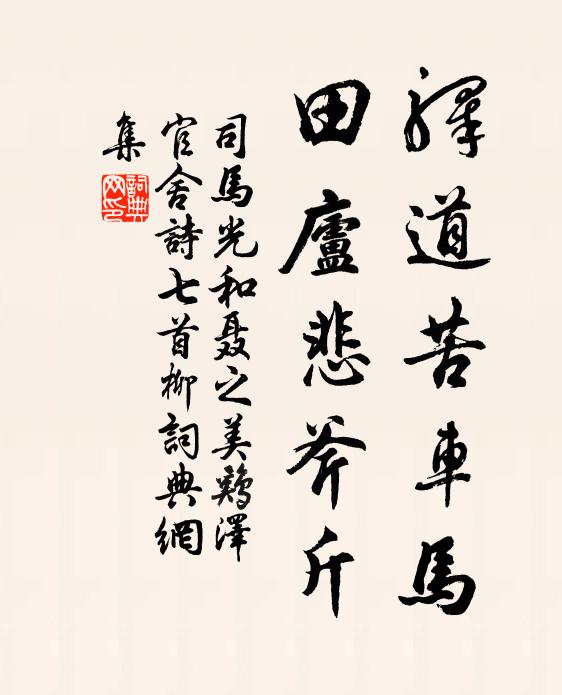 驛道苦車馬
田廬悲斧斤
司馬光和聂之美鷄澤
官舍詩七首柳詞典網
集
詞典
网印